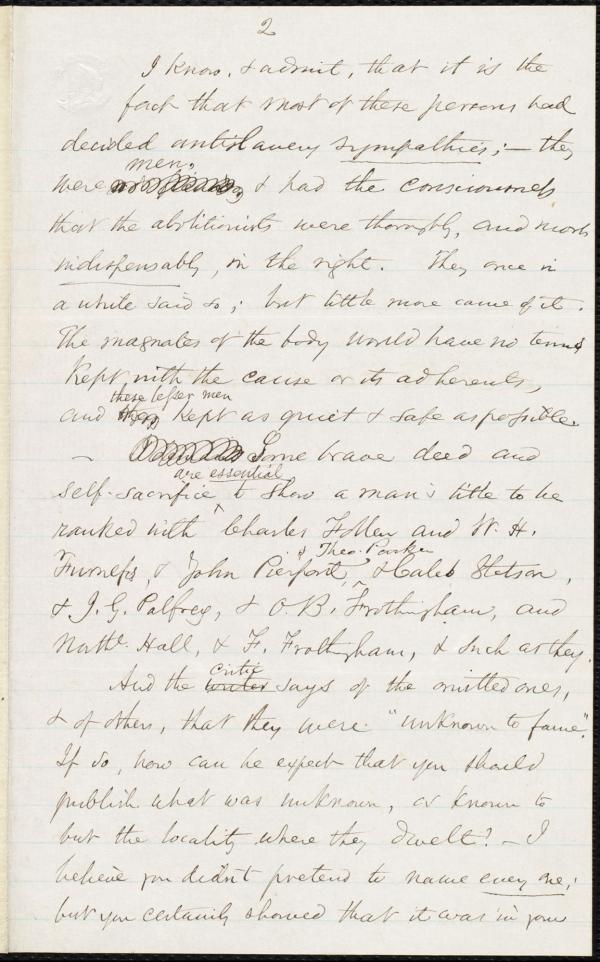 2
I know, & admit, that it is the
fact that most of these persons had
decided antislavery sympathies; — they
men,
were & had the consciousness
that the abolitionists were thoroughly, and most
indispensably, in the right. They once in
a while said so; but little more came of it.
The magnates of the body would have no terms
kept with the cause or its adherents,
these lesser men
and they kept as quiet & safe as possible.
— Some brave deed and
are essential
self-sacrifice ^ to show a man's title to be
ranked with Charles Follen and W. H.
& Theo. Parker
Furness, & John Pierpont, ^ & Caleb Stetson,
& J. G. Palfrey, & O. B. Frothingham, and
Nathl. Hall, & F. Frothingham, & such as they.
critic
And the writer says of the omitted ones,
& of others, that they were "unknown to fame".
If so, how can he expect that you should
publish what was unknown, or known to
but the locality where they dwelt? — I
believe you didn't pretend to name every one;
but you certainly showed that it was in your